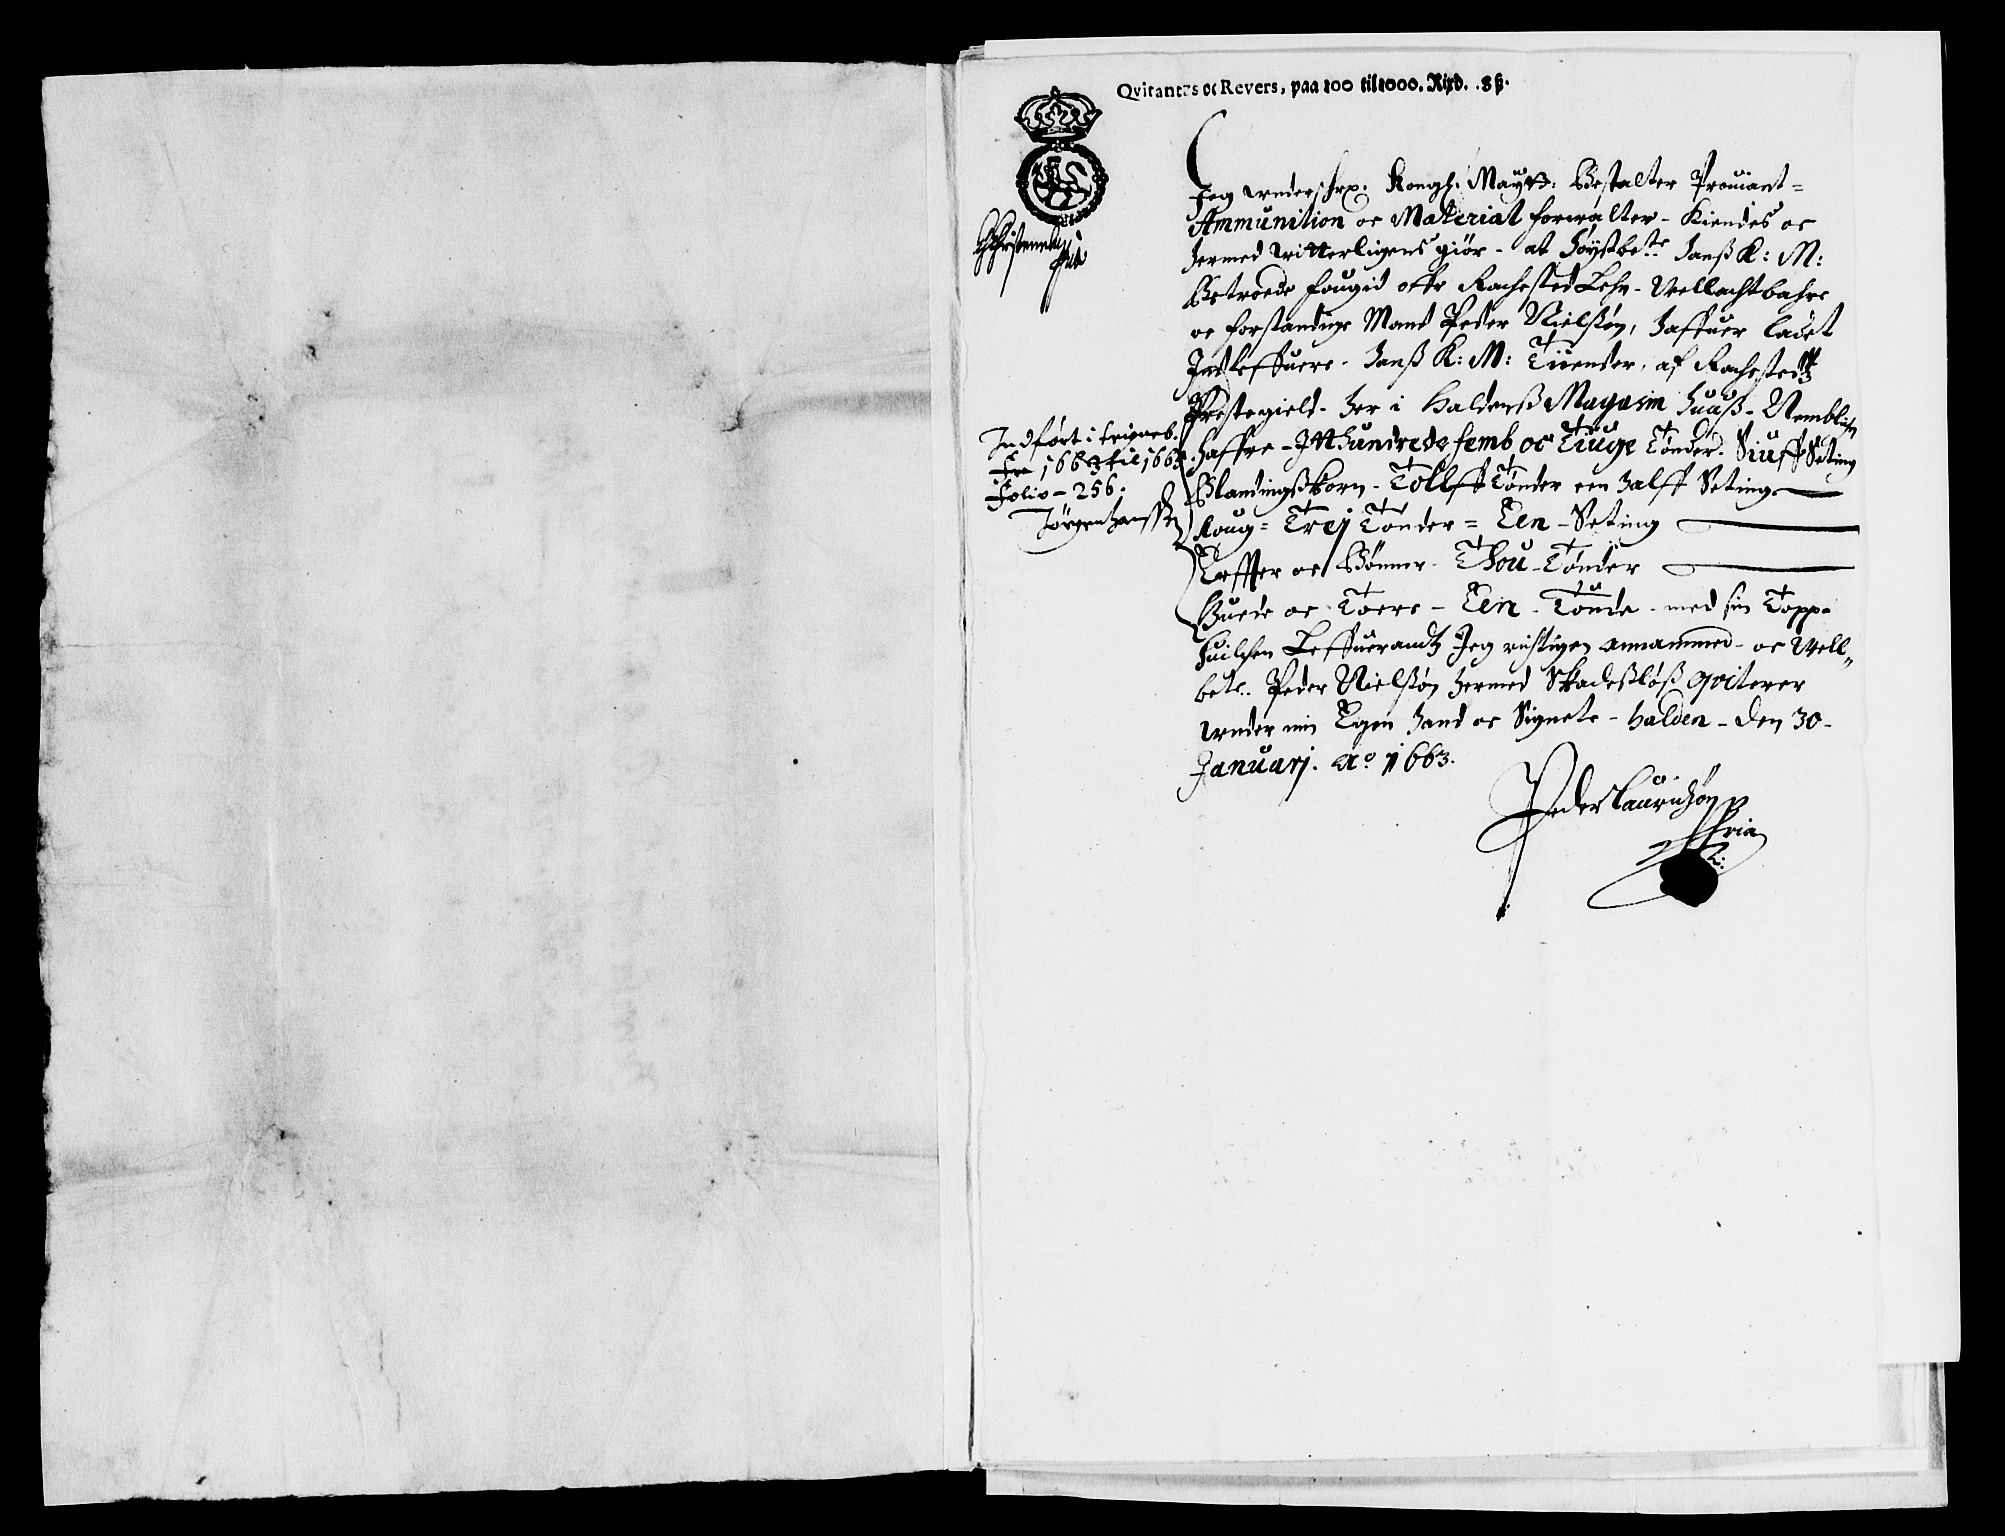 Qvitantzs oc Revers, paa 100 til 1000. Rixd. .8 ß.
Jeg underschrx. Kongl. Maytz. Bestalter Proviant=
Ammunition oc Material forvalter - Kiendes oc
hermed vitterligens giør - at høystbete hanß K: M:
Betroede fougid offr Rachested Lehn - Vellachtbahre
oc forstandige Mand Peder Nielsøn, haffuer ladet
Indleffuere - hanß K: M: Tiiender, af Rachestedtz
Prestegield - her i Haldenß Magasin huuß - Nemblig
haffre - It hundrede femb oc Tiuge Tønder. Siuff Seting
Blandingßkorn - Tolff Tønder een halff Seting
Roug = Trej Tønder = Een - Seting
Erffter oc Bønner - Thou - Tønder
Huede oc Toere - Een - Tønde - med sin Topp-
huilchen Leffuerandtz Jeg richtigen annammed - oc Vell„
bete. Peder Nielsøn hermed Skadeßløß qviterer
under min Egen hand oc Signete - Halden - den 30 -
Januarj. Ao 1663.
Peder Lauridzøn
Indført i
Fra 1663 til 1665
Folio - 256.
Jørgen Hanssen